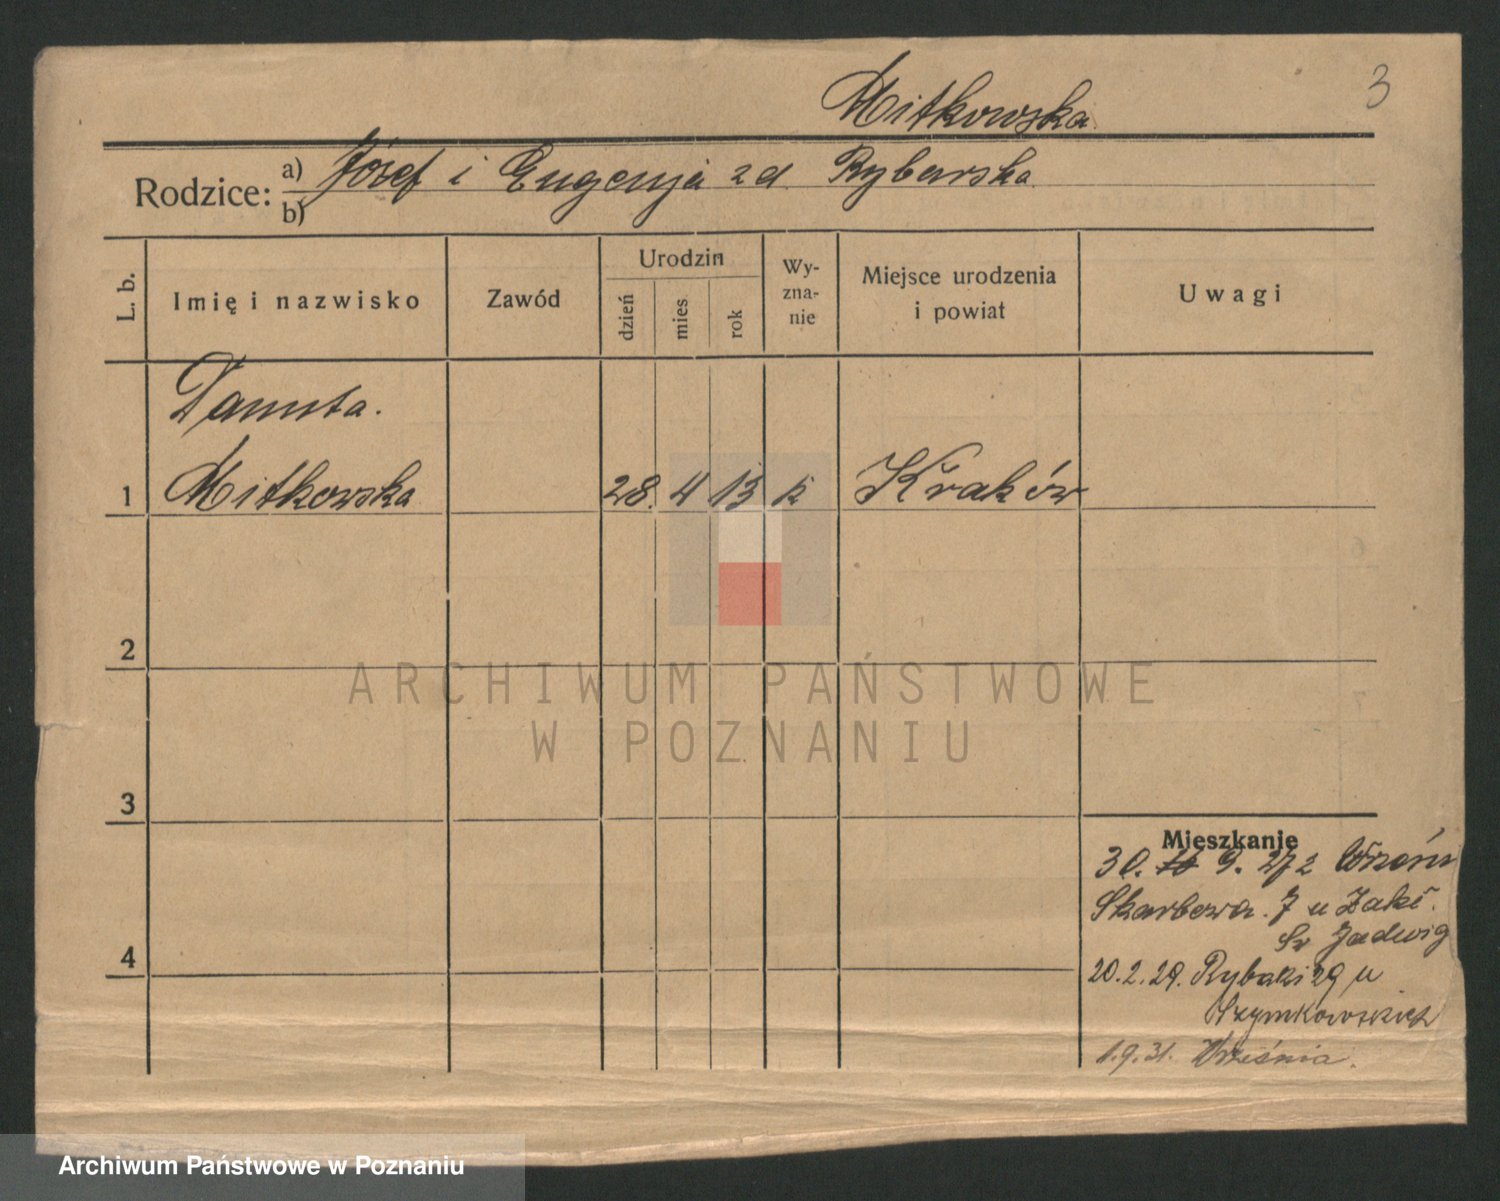 3
Mitkowska
Rodzice: a) Józef i Eugenja zd. Rybarska
b)
L. b. Imię i nazwisko Zawód Urodzin dzień mies. rok Wy-zna-nie Miejsce urodzenia i powiat Uwagi
Danuta.
1 Mitkowska 28. 4 13 k Kraków
2
3
4
Mieszkanie
30. 9. 27 z
Skarbowa. 7 u Zakł.
Św Jadwig
20.2.29. Rybaki 29 u
Szymkowskich
1.9.31. Września.
ARCHIWUM PAŃSTWOWE
W POZNANIU
Archiwum Państwowe w Poznaniu